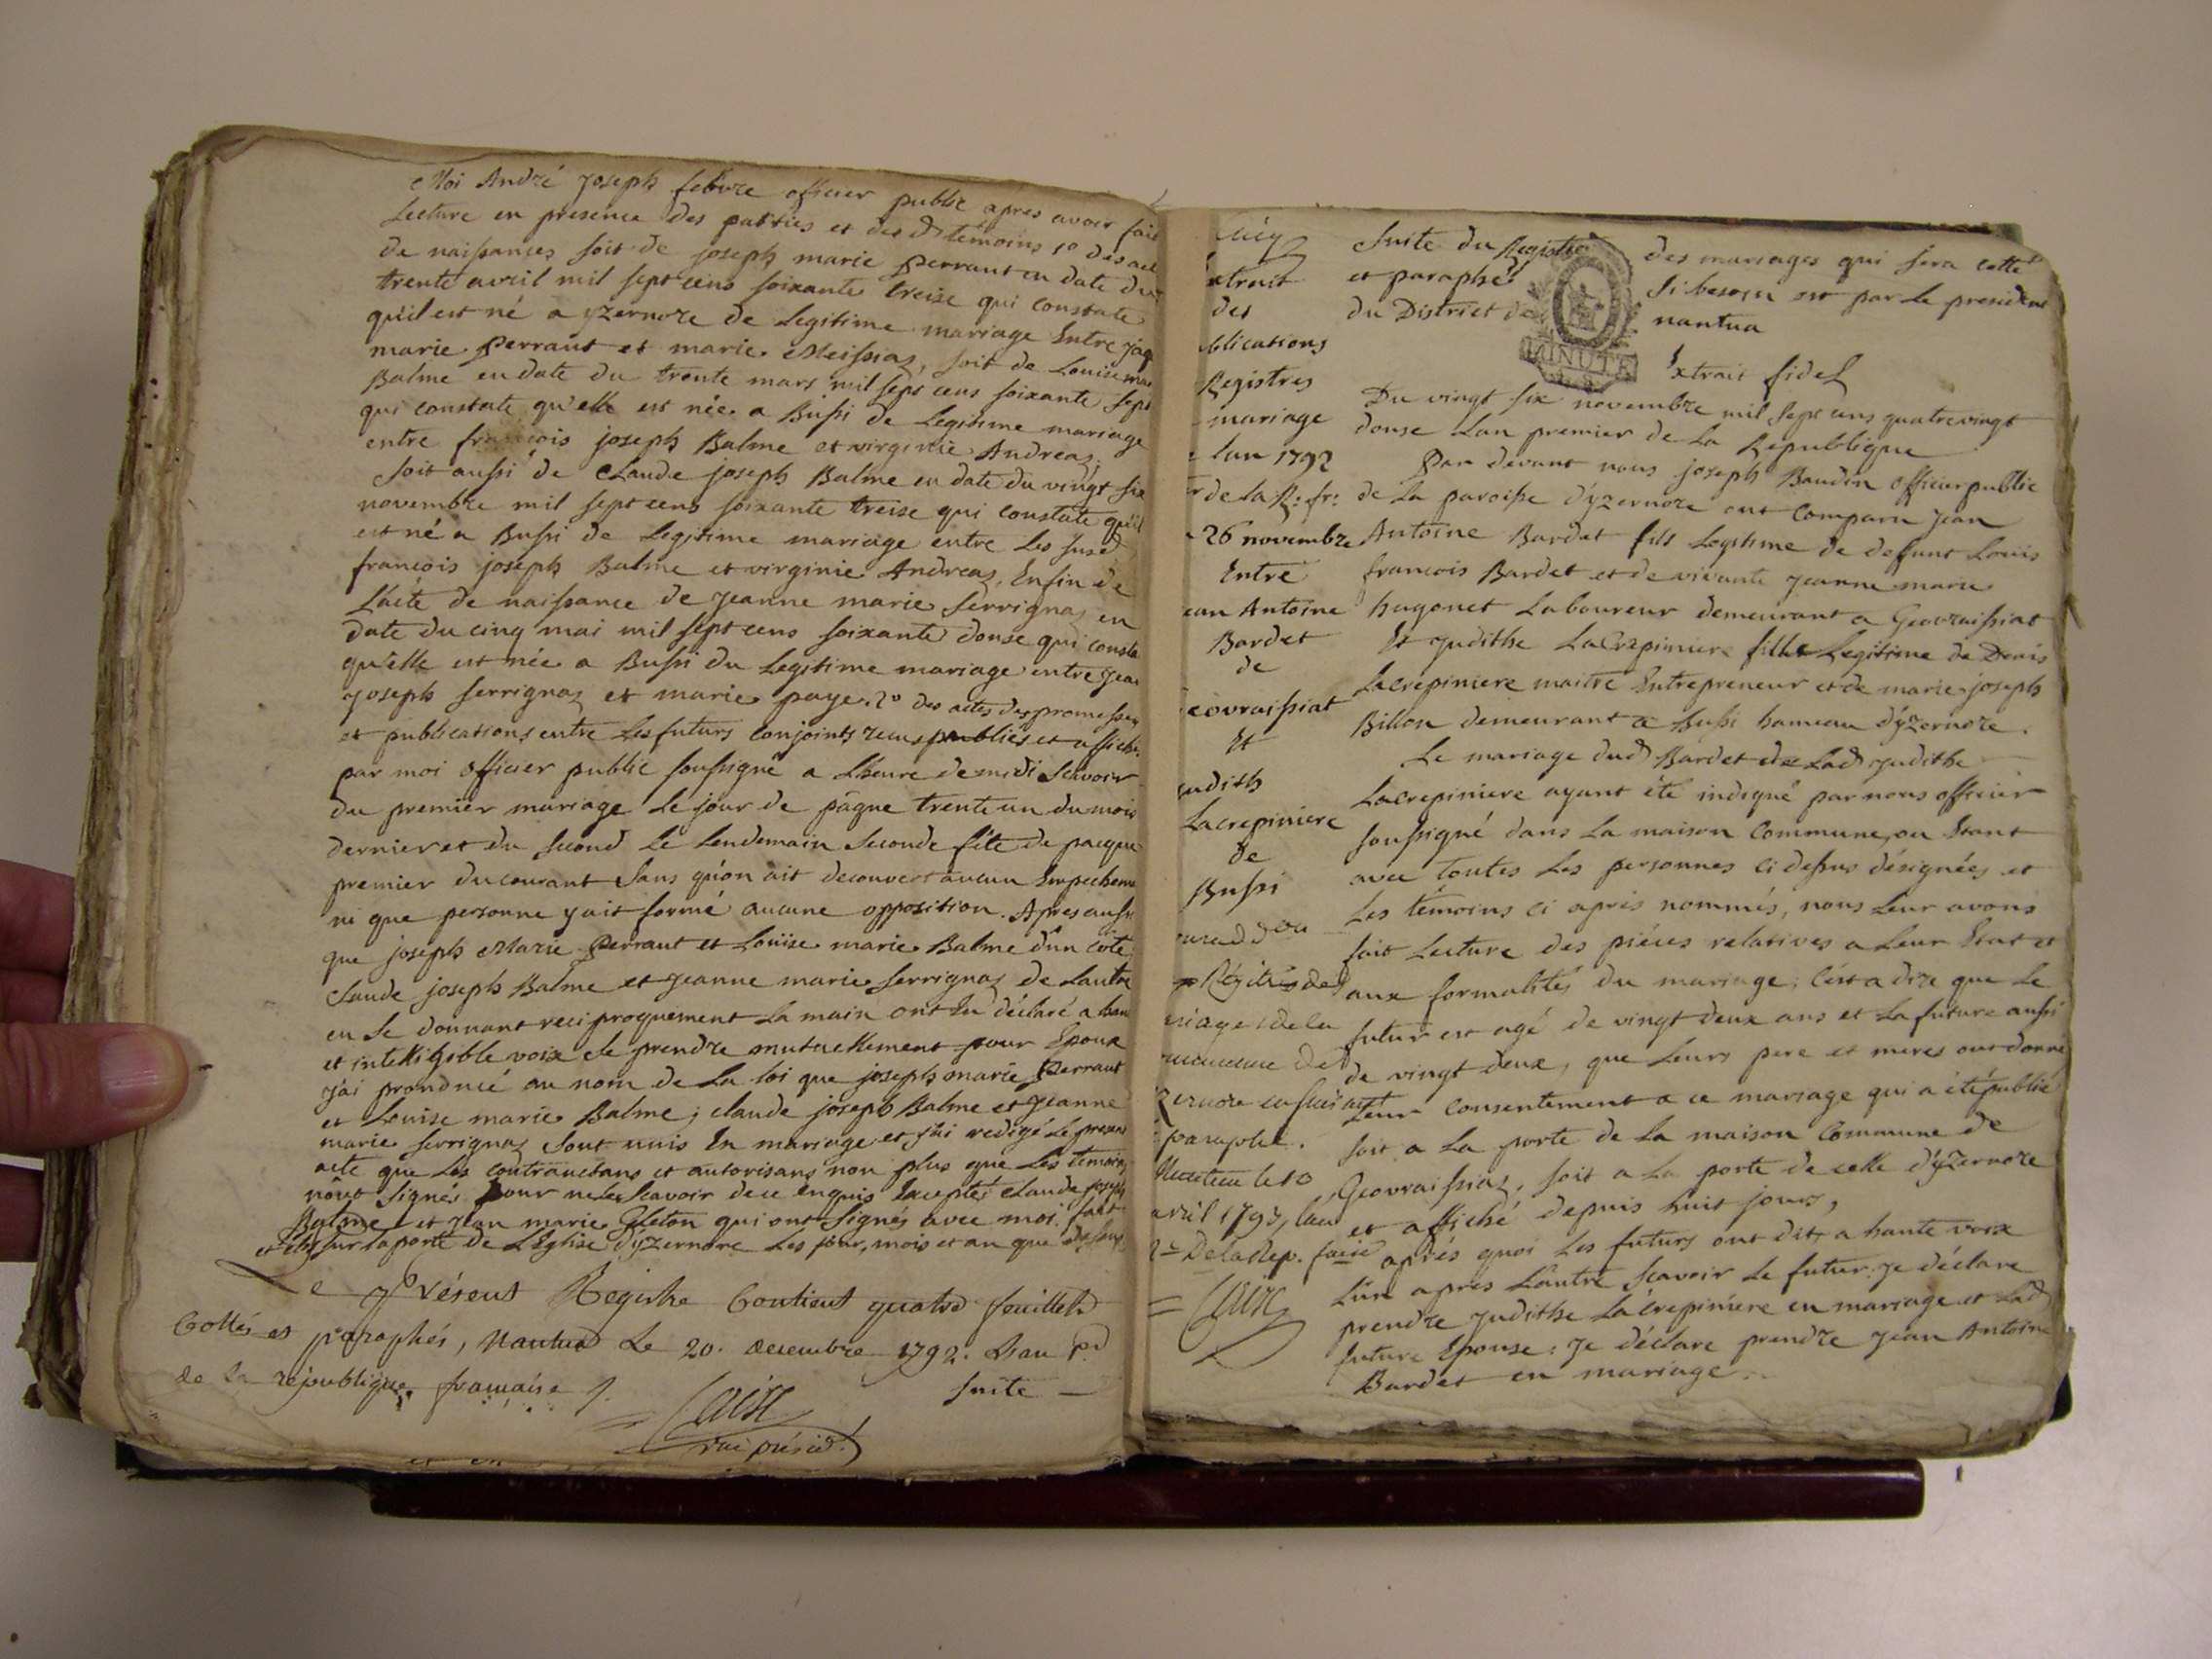 Moi André joseph febvre officier public apres avoir fait
Lecture en presence des parties et des d. témoins 1o des act
de naissances soit de joseph marie perraut en date du
trente avril mil sept cens soixante treise qui constate
qu'il est né a yzernore de Legitime mariage Entre jaq
marie perraut et marie Meissiaz, soit de Louise mar
Balme en date du trente mars mil sept cens soixante sept
qui constate qu'elle est née a Bussi de Legitime mariage
entre francois joseph Balme et virginie Andreaz.
Soit aussi de Claude joseph Balme en date du vingt six
novembre mil sept cens soixante treise qui constate qu'il
est né a Bussi de Legitime mariage entre Les susd
francois joseph Balme et virginie Andreaz, Enfin de
L'acte de naissance de jeanne marie Serrignaz en
date du cinq mai mil sept cens soixante douse qui consta
qu'elle est née a Bussi du Legitime mariage entre jean
joseph Serrignaz et marie paye. 2o des actes des promesses
et publications entre Les futurs conjoints recus publiés et affiché
par moi officier public soussigné a L'heure de midi Scavoir
du premier mariage Le jour de pâque trente un du mois
dernier et du second Le Lendemain Seconde fête de pacque
premier du courant Sans qu'on ait decouvert aucun Empechem
ni que personne y ait formé aucune opposition. Apres aussi
que joseph Marie Perraut et Loüise marie Balme d'un côté
Claude joseph Balme et jeanne marie Serrignaz de Lautre
en Se donnant reciproquement La main ont eu déclaré a hau
et intelligible voix Se prendre mutuellement pour Epoux
j'ai prononcé au nom de La loi que joseph marie Perraut
et Louise marie Balme; claude joseph Balme et jeanne
marie Serrignaz Sont unis En mariage et j'ai redigé Le present
acte que Les contractans et autorisans non plus que Les temoins
n'ont Signés pour ne Le Scavoir de ce enquis Exceptés Claude joseph
Balme et jean marie Gleton qui ont Signés avec moi. fait
et sur la porte de L'Eglise d'yzernore Les jour, mois et an que dessus
Le présent Registre Contient quatre feuillets
Cottés et paraphés, Nantua Le 20. decembre 1792. L'an pr
de la république francaise /.
Suite
vice présid.
extrait
des
blications
Registres
mariage
Lan 1792
er de la R: fr:
26 novembre
Entre
ean Antoine
Bardet
de
eovraissiat
Et
judith
Lacrepiniere
de
Bussi
Régitre de
riage de la
paraphé.
avril 1793, lan
2e De la Rep. faise
Suite du Registre des mariages qui sera cotté
et paraphé Si besoin est par Le president
du District de nantua
MINUTE
Extrait fidel
Du vingt six novembre mil sept cens quatrevingt
douse Lan premier de La Republique
Par devant nous joseph Baudin officier public
de La paroisse d'yzernore ont comparu jean
Antoine Bardet fils Legitime de deffunt Louis
francois Bardet et de vivante jeanne marie
hugonet Laboureur demeurant a Geovraissiat
Et judithe LaCrepiniere fille Legitime de Denis
Lacrepiniere maitre Entrepreneur et de marie joseph
Billon demeurant a Bussi hameau d'yzernore.
Le mariage dud Bardet et de Lad judithe
Lacrepiniere ayant été indiqué par nous officier
soussigné dans La maison Commune, ou Etant
avec toutes Les personnes ci dessus désignées et
Les témoins ci après nommés, nous Leur avons
fait Lecture des piéces relatives a Leur Etat et
aux formalités du mariage; c'est a dire que Le
futur est agé de vingt deux ans et La future aussi
de vingt deux, que Leurs pere et meres ont donné
Leur consentement a ce mariage qui a été publié
soit a La porte de La maison Commune de
Geovraissiaz, soit a La porte de celle d'yzernore
et affiché depuis huit jours,
aprés quoi Les futurs ont dit, a haute voix
L'un apres L'autre Scavoir Le futur: je déclare
prendre judithe La crepiniere en mariage et Lad
future Epouse: je déclare prendre jean Antoine
Bardet en mariage.